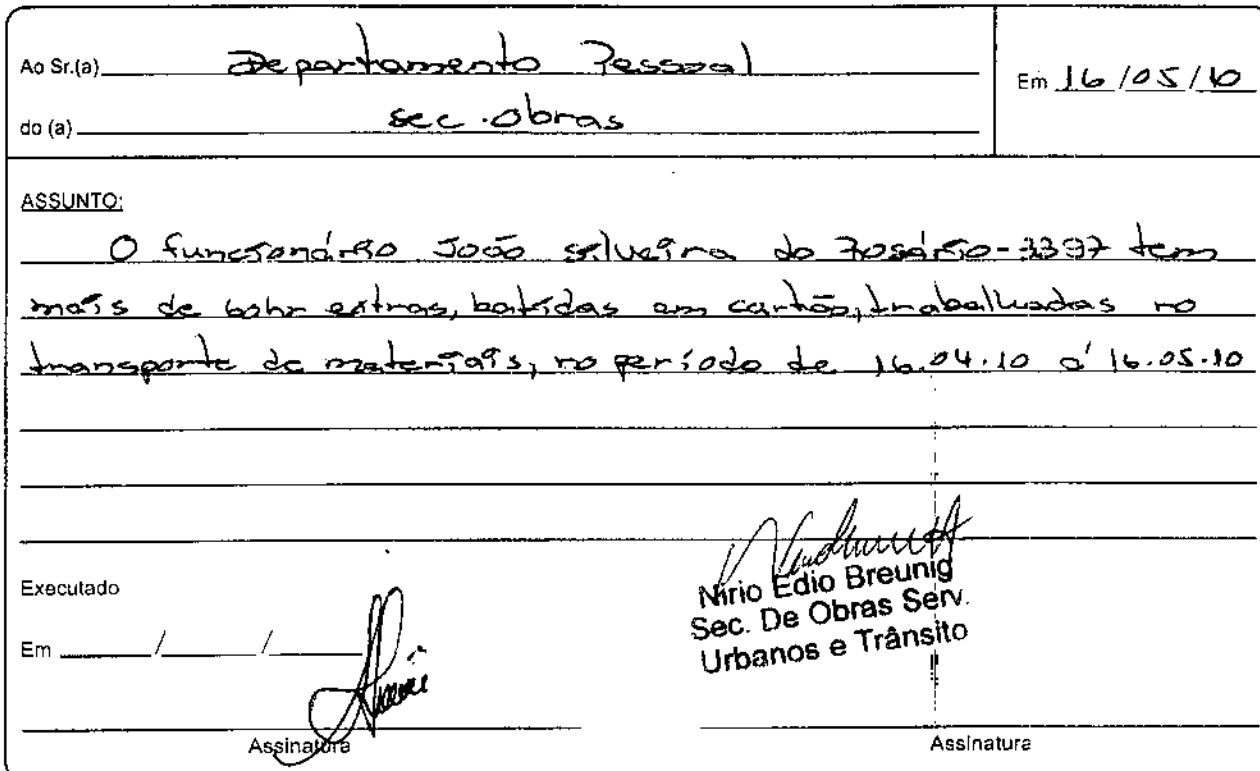 Ao Sr.(a) Departamento Pessoal
Em 16/05/10
do (a) sec. Obras
ASSUNTO:
O funcionário João silveira do Rosário - 3397 tem
mais de 60hr extras, batidas em cartão, trabalhadas no
transporte de materiais, no período de 16.04.10 a' 16.05.10
Executado
Em / /
Nirio Edio Breunig
Sec. De Obras Serv.
Urbanos e Trânsito
Assinatura
Assinatura